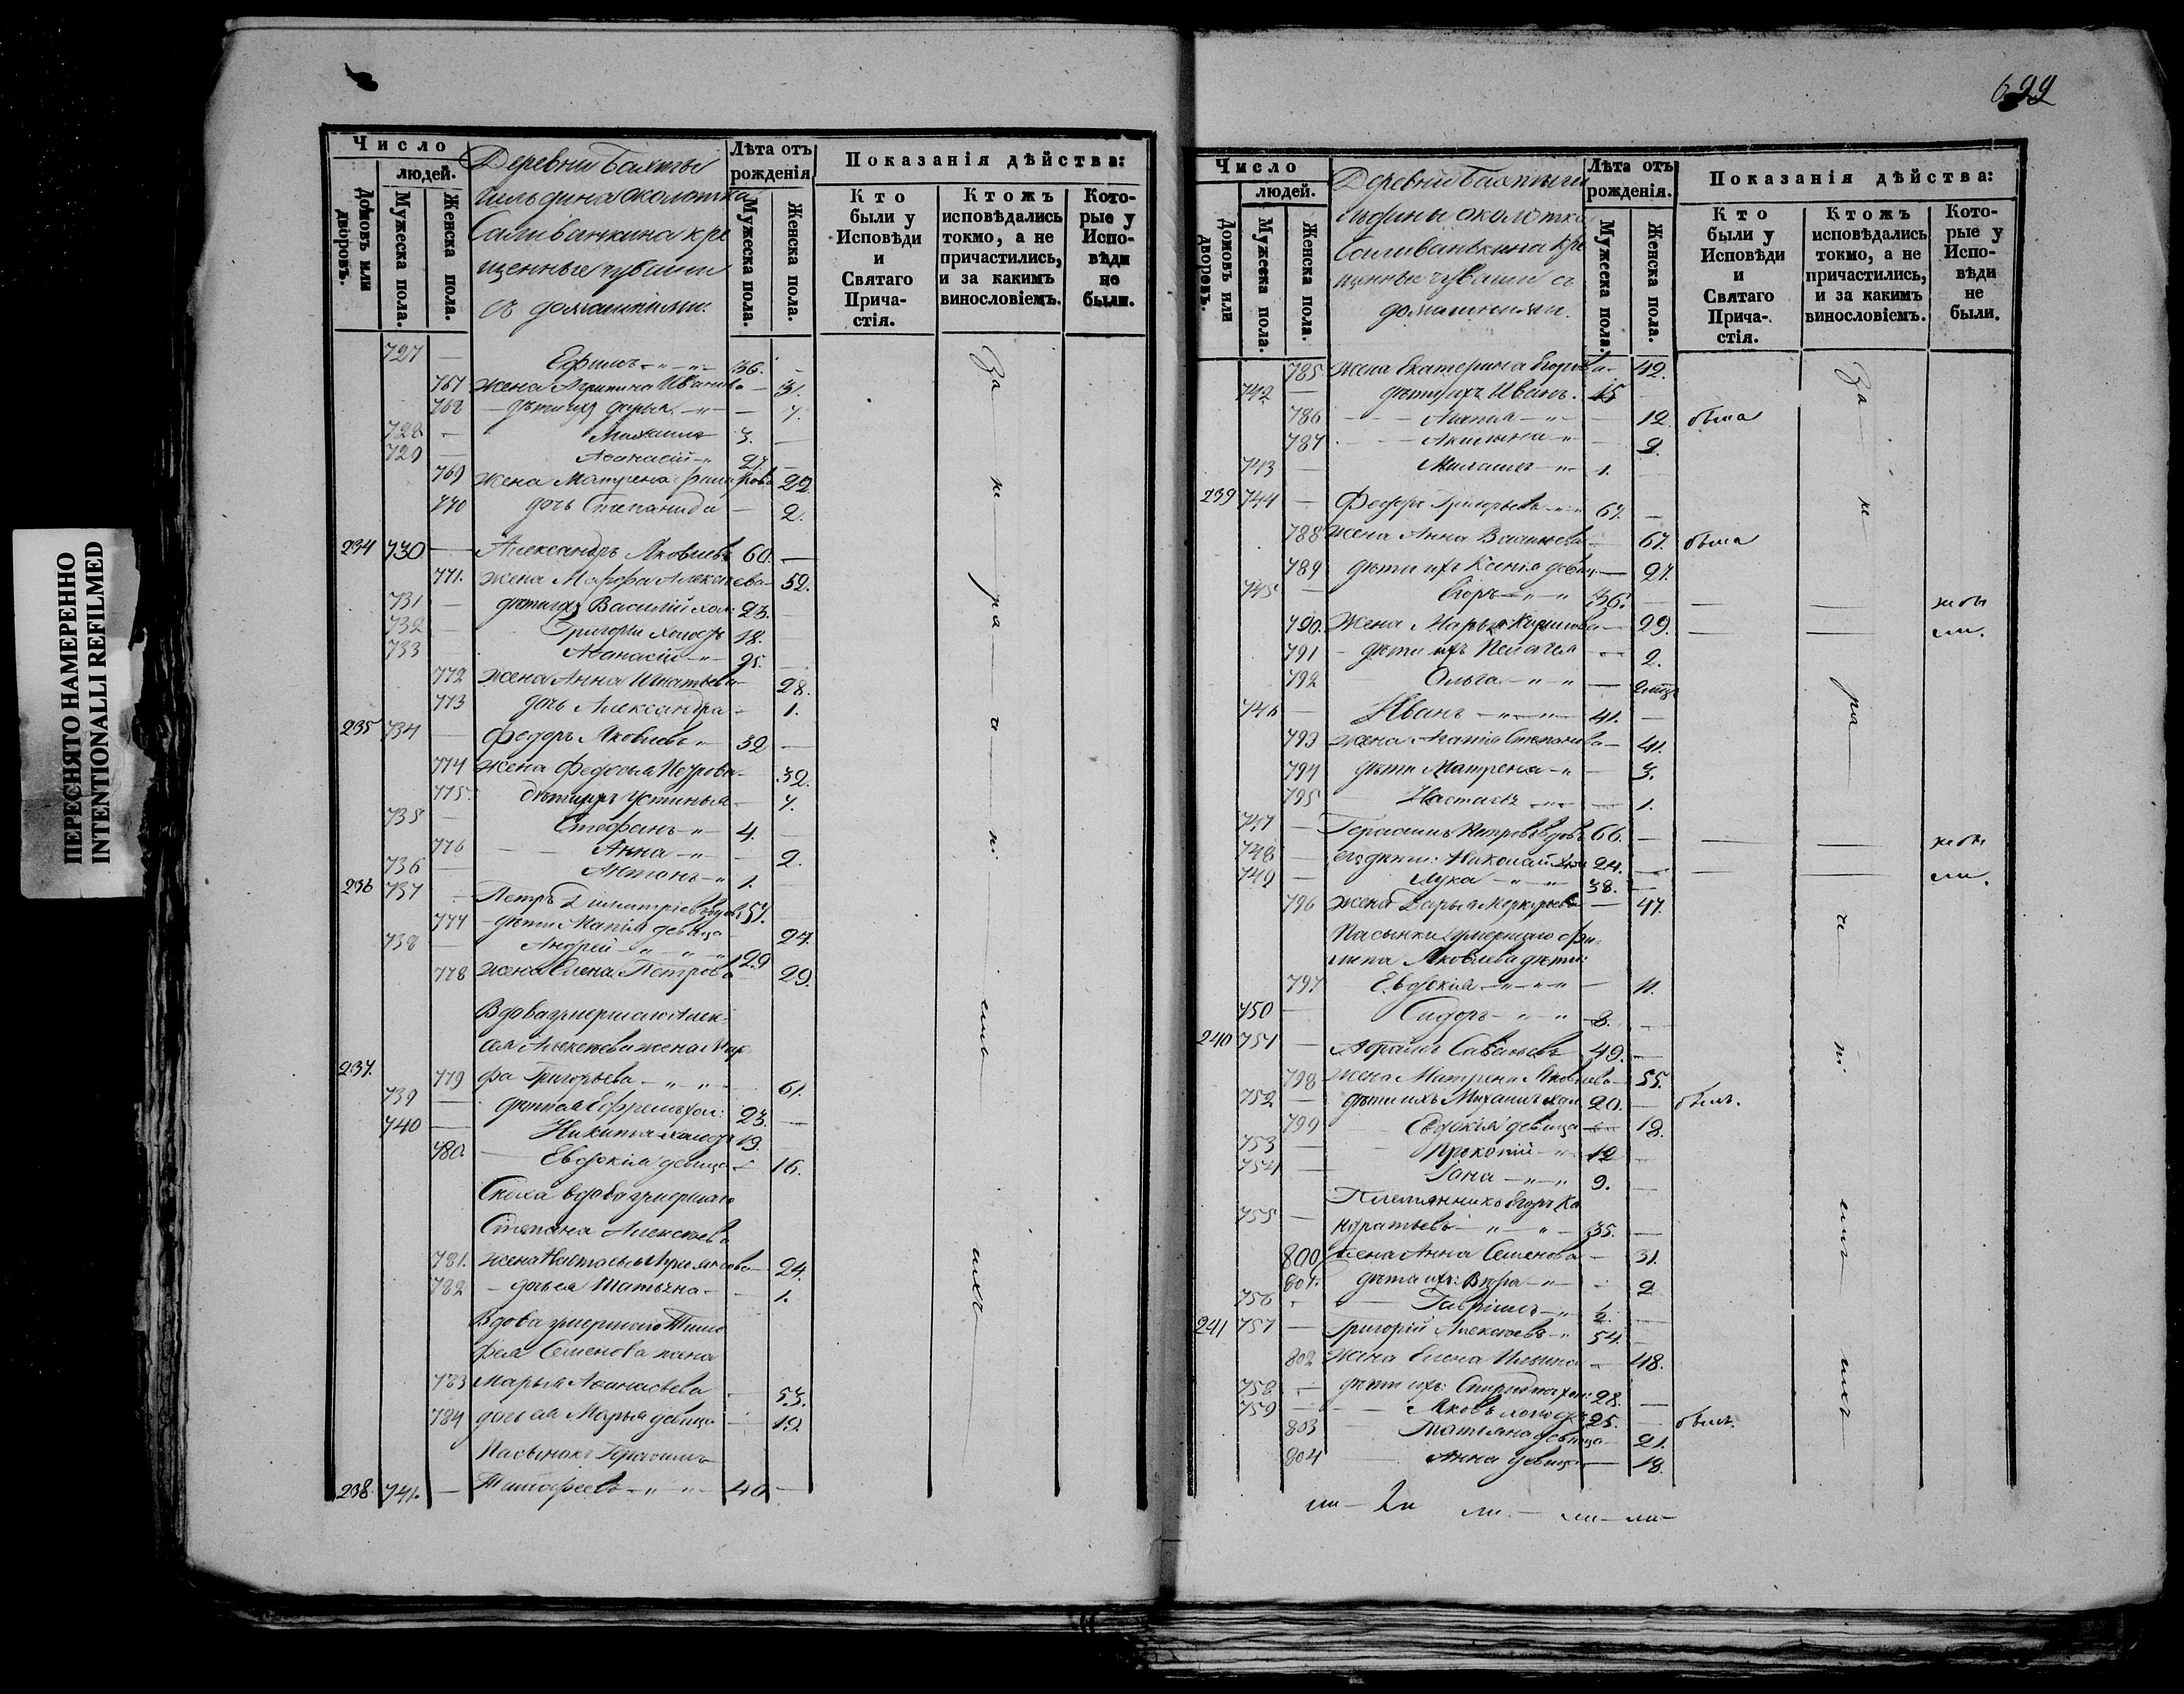 ПЕРЕСНЯТО НАМЕРЕННО
INTENTIONALLI REFILMED
Число
людей.
Домовъ или дворовъ.
Мужеска пола.
Женска пола.
Деревни Бахты
гильдина околотка
Саливанкина кре
щенные чуваши
съ домашними.
Лѣта отъ рожденія
Мужеска пола.
Женска пола.
Показанія дѣйства:
Кто были у Исповѣди и Святаго Прича-стія.
Ктожъ исповѣдались токмо, а не причастились, и за какимъ винословіемъ.
Кото-рые у Испо-вѣди не были.
727 — Ефимъ 36. —
767 жена Агрипина Иванова — 31.
768 — дѣти ихъ Дарья — 7.
728 — Михаилъ 3. —
729 — Афанасій 27. —
769 жена Матрена 22
770 дочь Степанида — 2.
234 730 — Александръ Яковлевъ 60. —
771. жена Марфа Алексѣева — 52.
731 — дѣти ихъ Василій хол: 23. —
732 — Григорій холостъ 18.
733 Афанасій 25. —
772 жена Анна Игнатьева — 28.
773 дочь Александра — 1.
235 734 — Федоръ Яковлевъ 32 —
774 жена Федосья Петрова — 32.
775. дѣти ихъ Устинья — 7.
735 — Стефанъ 4. —
776 — Анна — 2.
736 — Антонъ 1.
236 737 — Петръ Димитріевъ вдовъ 57.
777 — дѣти Марія девица 24.
738 — Андрей 29
778 жена Елена Петрова 29.
Вдова умершаго Алек
сея Алексѣева жена Мар
237. 779 фа Григорьева 61.
739 — дѣти ея Ефремъ хол: 23. —
740 — Никита холостъ 19.
780. — Евдокія девица — 16.
Сноха вдова умершаго
Степана Алексѣева
781. жена Настасья — 24.
782 — дочь ея Татьяна — 1.
Вдова умершаго Тимо
фея Семенова жена
783 Марья Афанасьева — 53.
784 дочь ея Марья девица — 19.
Пасынокъ Герасимъ
238. 741. — Тимофеевъ 40 —
За
не
ра
че
ні
емъ
ихъ
699
Число
людей.
Домовъ или дворовъ.
Мужеска пола.
Женска пола.
Деревни Бахтыги
льдины околотка
Саливанькина кре
щенные чуваши съ
домашними.
Лѣта отъ рожденія.
Мужеска пола.
Женска пола.
Показанія дѣйства:
Кто были у Исповѣди и Святаго Прича-стія.
Ктожъ исповѣдались токмо, а не причастились, и за какимъ винословіемъ.
Кото-рые у Испо-вѣди не были.
785 жена Екатерина Егорова — 42.
742 — дѣти ихъ Иванъ. 15
786 — 12 была
787 Акилина — 2.
743 — Михаилъ 1.
239 744 — Федоръ Григорьевъ 67. —
788 жена Анна Васильева — 67. была
789 дѣти ихъ Ксенія девиц — 27.
745 — Егоръ 36. — — —
790. жена Марья Кирилова — 29. — —
791 — дѣти ихъ Пелагея 2.
792 Ольга —
746 — Иванъ 41. —
793 жена Агафія Степанова — 41.
794 дѣти Матрена — 3.
795 Настасья — 1.
747 — Герасимъ Петровъ вдовъ 66. — — —
748 — его дѣти: Николай хол 24. —
749 — Лука 38. — — —
796 жена Дарья Меркурьева — 47.
Пасынки умершаго Фи
липа Яковлева дѣти:
797 Евдокія — 11.
750 — Сидоръ 8. —
240 751 — Абрамъ Савельевъ 49. —
798 жена Матрена Яковлева — 55.
752 — дѣти ихъ Михаилъ хол 20. — былъ.
799 Евдокія девица — 18.
753 Прокопій 12 —
754 — 9. —
Племянникъ Егоръ Ко
755 — ндратьевъ 35. —
800 жена Анна Семенова — 31.
801. дѣти ихъ: Вѣра — 2
756 — Гаврiилъ 1/2. —
241 757 — Григорій Алексѣевъ 54. —
802 жена Елена Ильина — 48.
758. — дѣти ихъ: Спиридонъ хол: 28. —
759 — Яковъ холостъ 25. — былъ.
803 Татьяна девица — 21.
804 Анна девица — 18.
За
не
ра
че
ні
емъ
ихъ